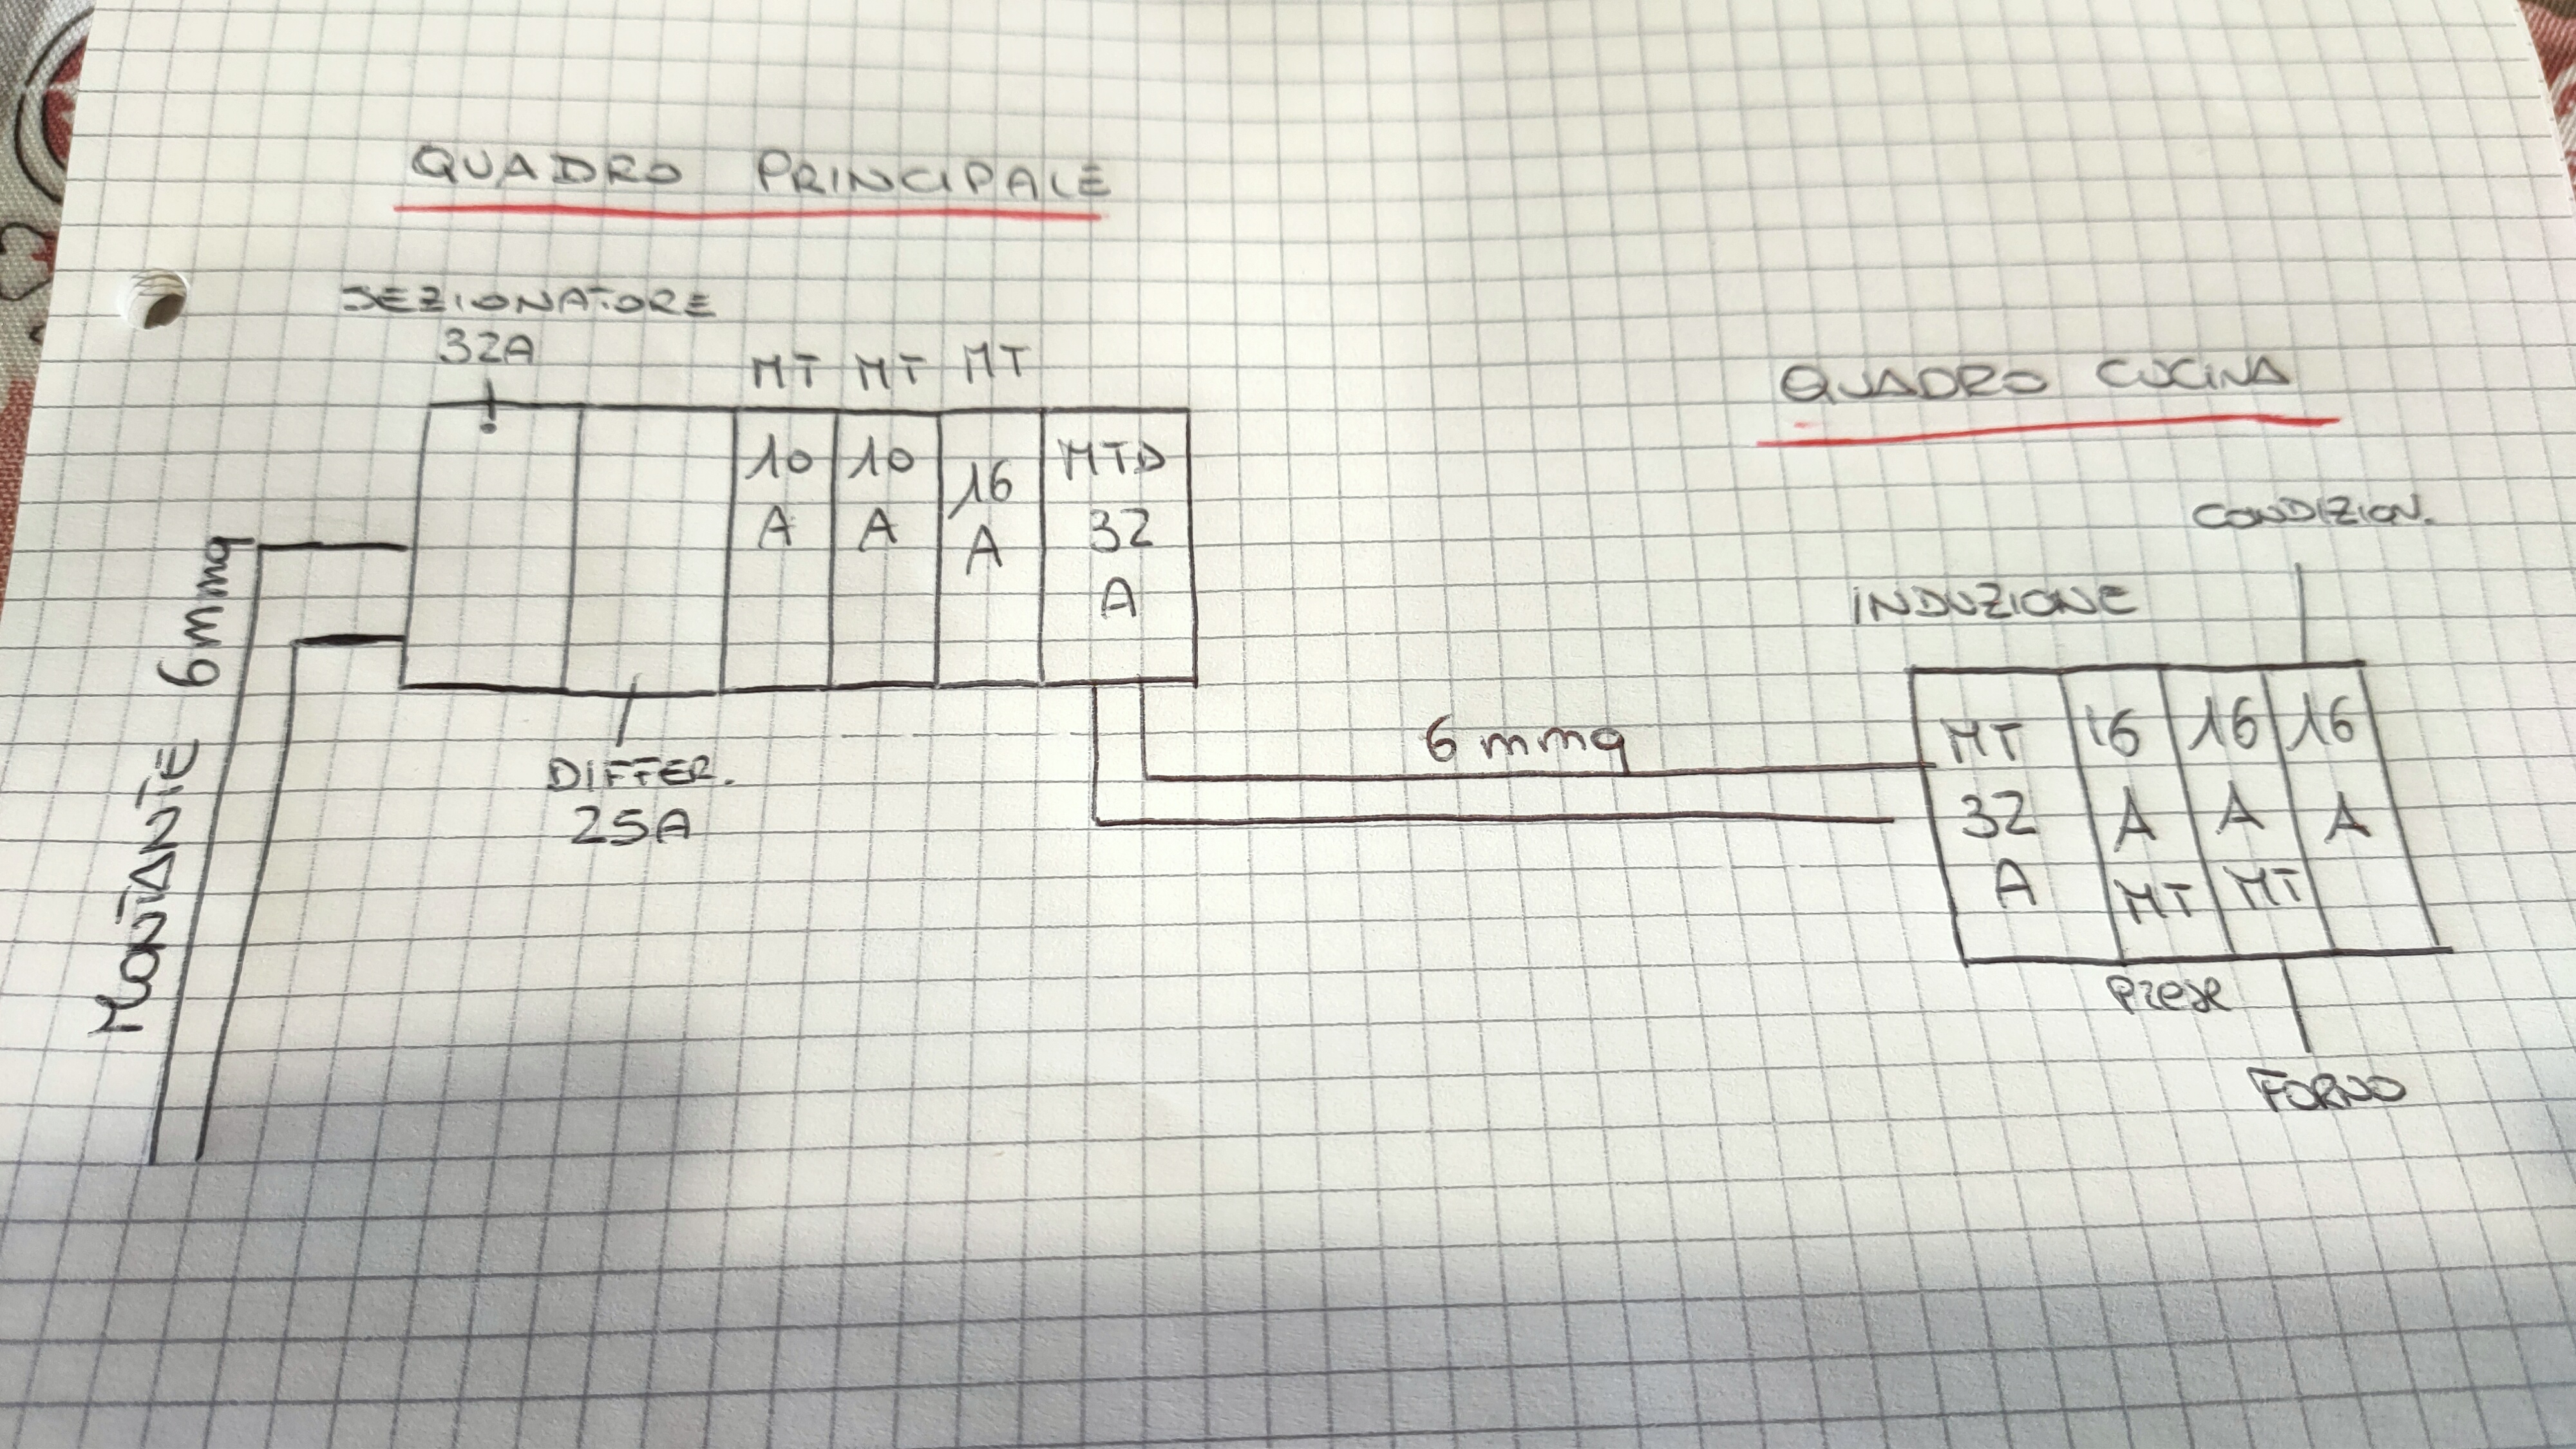 QUADRO PRINCIPALE
SEZIONATORE
32A
MT MT MT
10
A
10
A
16
A
MTD
32
A
DIFFER.
25A
MONTANTE 6mmq
6 mmq
QUADRO CUCINA
CONDIZION.
INDUZIONE
MT
32
A
16
A
MT
16
A
MT
16
A
Prese
FORNO